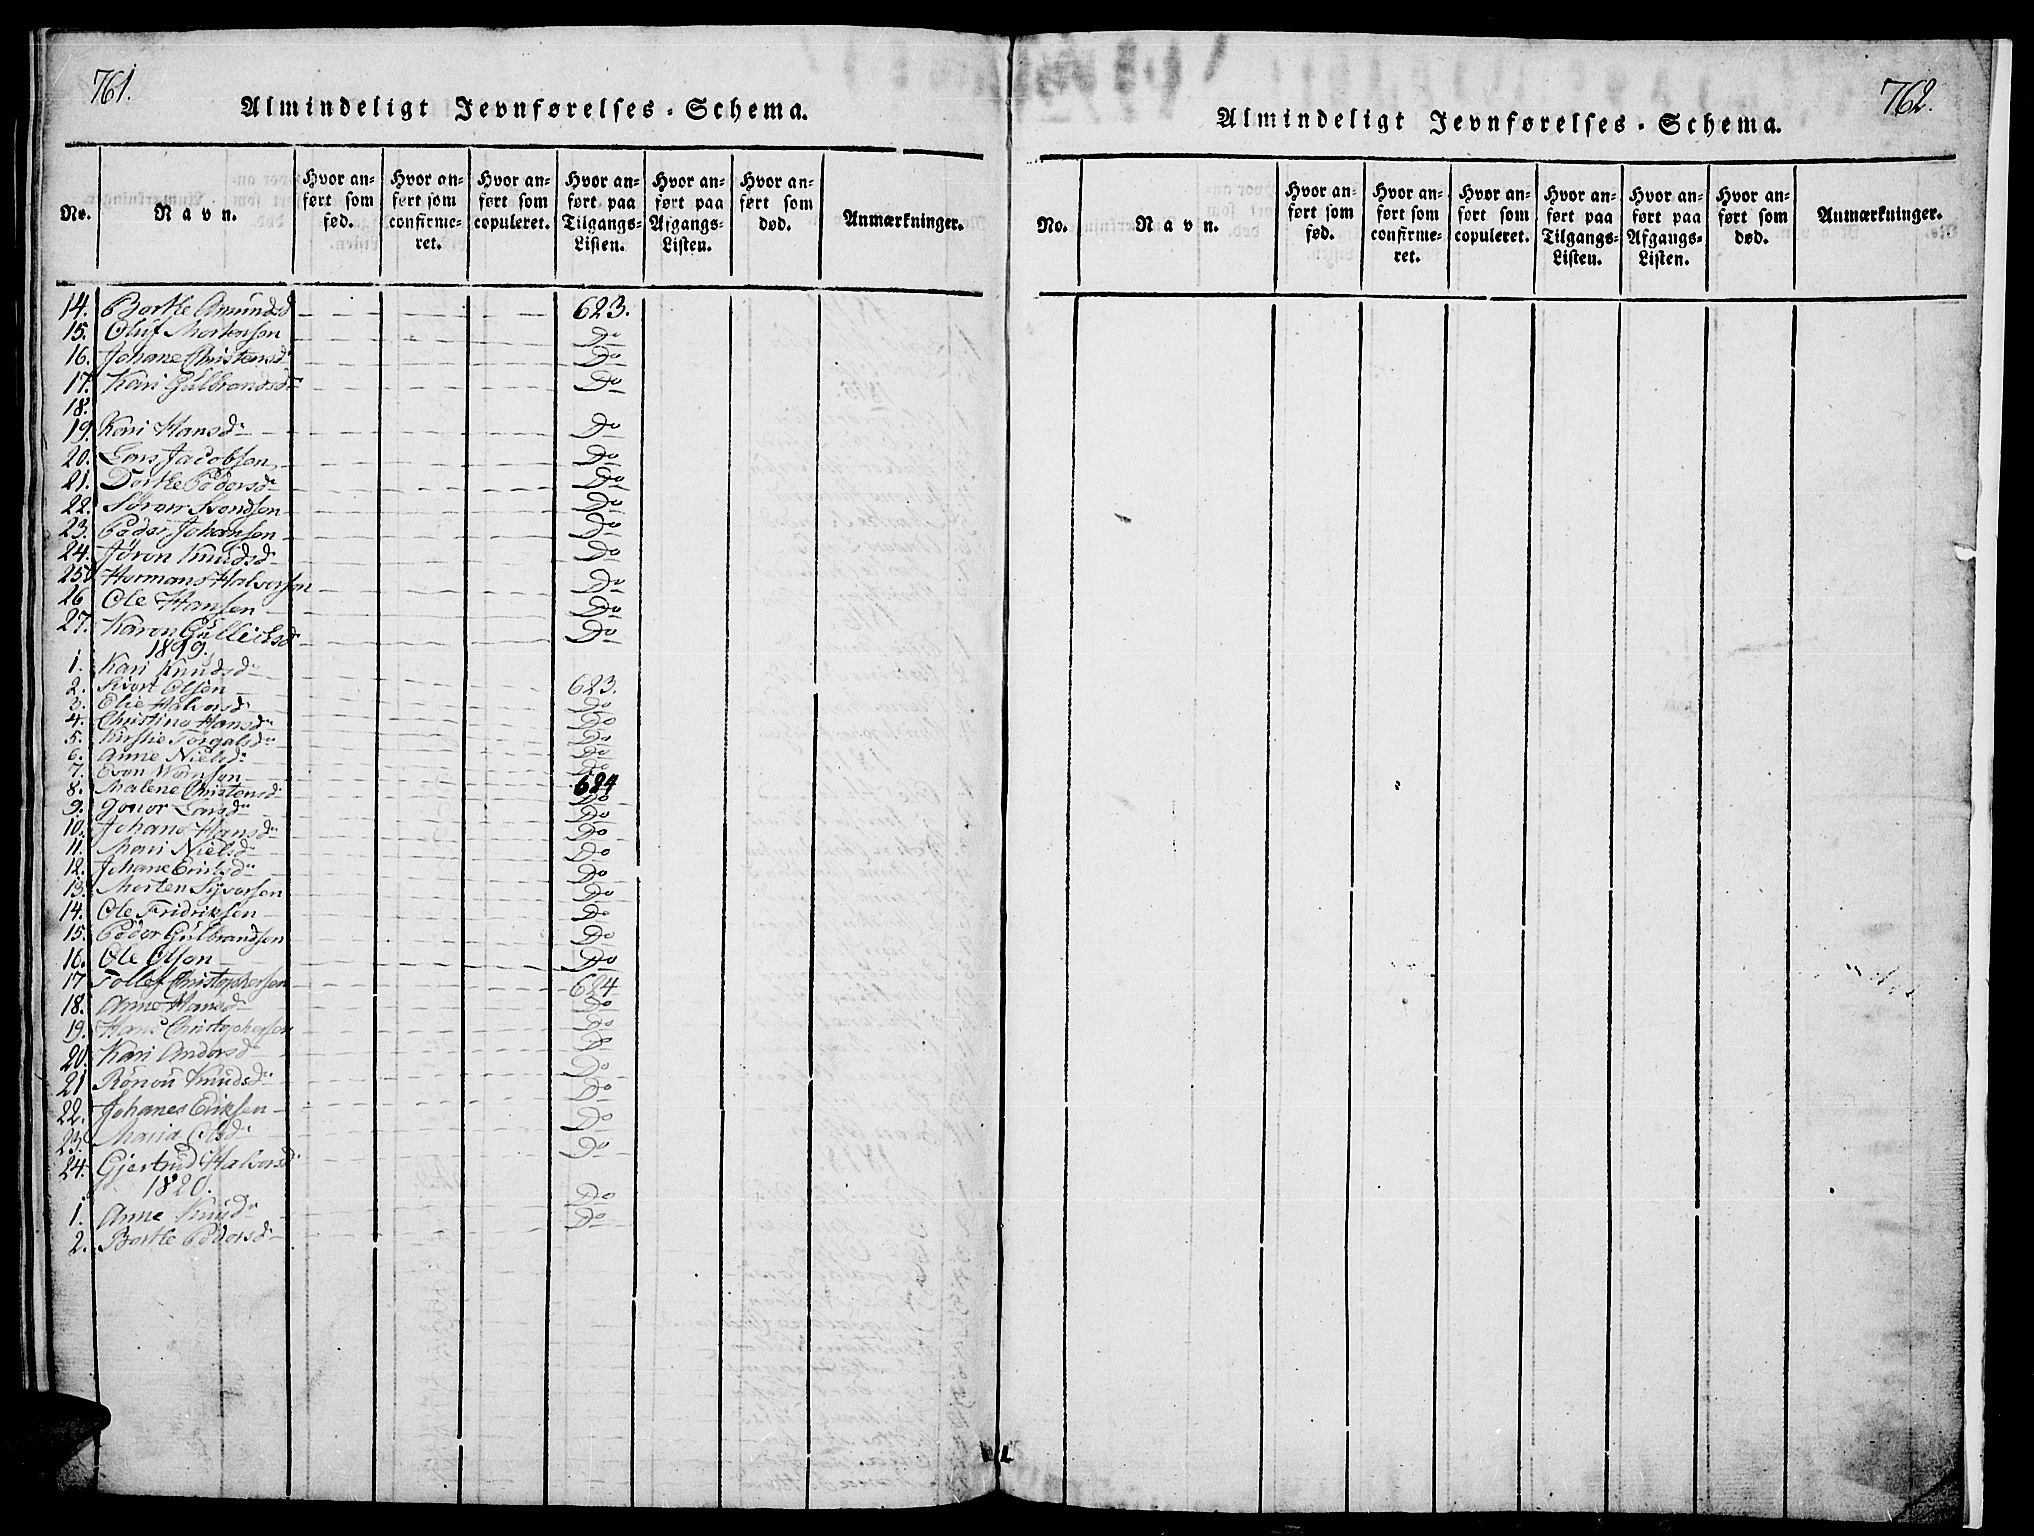 761.
Almindeligt Jevnførelses-Schema.
No. Navn. Hvor anført som fød. Hvor anført som confirmeret. Hvor anført som copuleret. Hvor anført paa Tilgangs-Listen. Hvor anført paa Afgangs-Listen. Hvor anført som død. Anmærkninger.
14. Berthe Amundsd 623.
15. Oluf Mortensen Do
16. Johane Christensd. Do
17. Kari Gulbrandsd. Do
18.
19. Kari Hansd. Do
20. Lars Jacobsen Do
21. Dorthe Pedersd. Do
22. Søren Svendsen Do
23. Peder Johansen Do
24. Jøron Knudsd. Do
25. Hermans Halvorsen Do
26 Ole Hansen Do
27. Karen Gullichsd. Do
1819.
1. Kari Knudsd. 
2. Sivert Olsen 623.
3. Elie Halvorsd. Do
4. Christine Hansd. Do
5. Kirstie Torgalsd. Do
6. Anne Nielsd. Do
7. Even Do
8. Malene Christensd. 624
9. Gunor Larsd. Do
10. Johane Hansd. Do
11. Mari Nielsd. Do
12. Johane Do
13. Morten Syversen Do
14. Ole Fridriksen Do
15. Peder Gulbrandsen Do
16. Ole Olsen Do
17 Tollef Christophersen 624
18. Anne Hansd. Do
19. Hans Christophersen Do
20. Kari Andersd. Do
21 Rønou Knudsd. Do
22. Johanes Eriksen Do
23. Maria Olsd. Do
24. Gjertrud Halvorsd. Do
1820.
1. Anne Knudsd. Do
2. Berthe Pedersd. Do
762.
Almindeligt Jevnførelses-Schema.
No. Navn. Hvor anført som fød. Hvor anført som confirmeret. Hvor anført som copuleret. Hvor anført paa Tilgangs-Listen. Hvor anført paa Afgangs-Listen. Hvor anført som død. Anmærkninger.